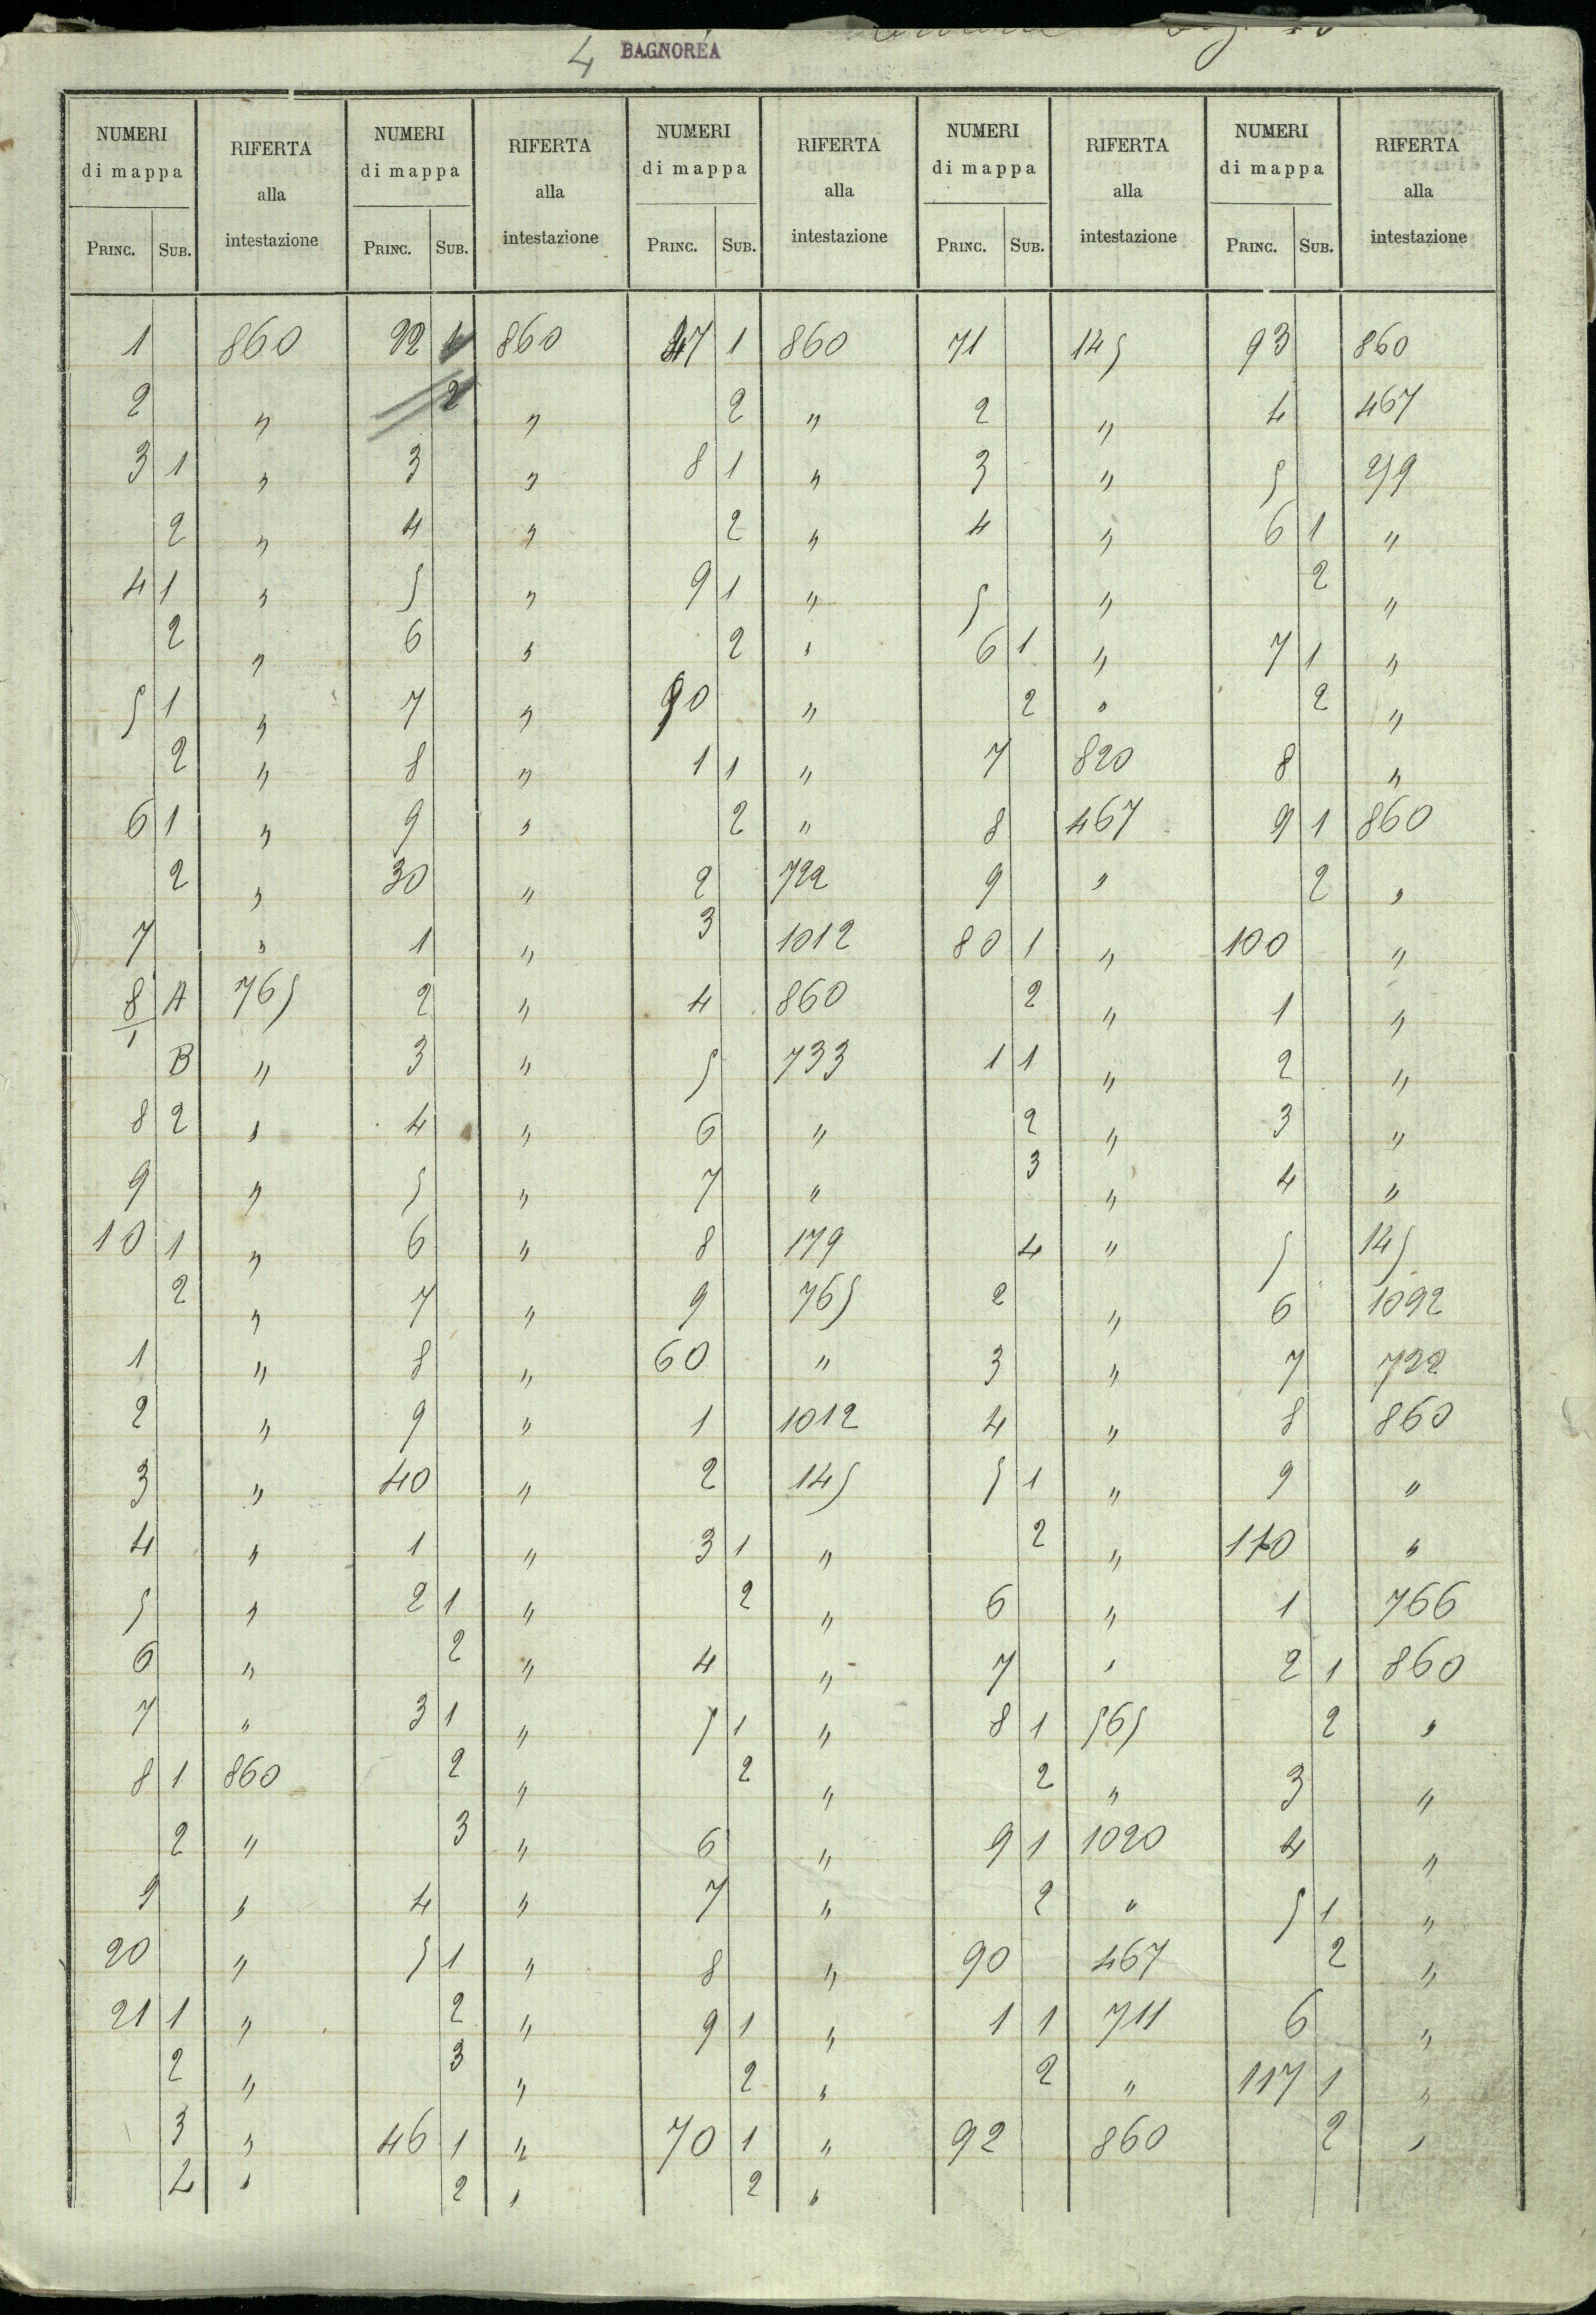 4 BAGNOREA
NUMERI di mappa RIFERTA alla intestazione NUMERI di mappa RIFERTA alla intestazione NUMERI di mappa RIFERTA alla intestazione NUMERI di mappa RIFERTA alla intestazione NUMERI di mappa RIFERTA alla intestazione
PRINC. SUB. PRINC. SUB. PRINC. SUB. PRINC. SUB. PRINC. SUB.
1 860 22 1 860 47 1 860 71 145 93 860
2 " 2 " 2 " 2 " 4 467
3 1 " 3 " 8 1 " 3 " 5 259
2 " 4 " 2 " 4 " 6 1 "
4 1 " 5 " 9 1 " 5 " 2 "
2 " 6 " 2 " 6 1 " 7 1 "
5 1 " 7 " 50 " 2 " 2 "
2 " 8 " 1 1 " 7 820 8 "
6 1 " 9 " 2 " 8 467 9 1 860
2 " 30 " 2 722 9 " 2 "
7 " 1 " 3 1012 80 1 " 100 "
8/1 A 765 2 " 4 860 2 " 1 "
B " 3 " 5 733 1 1 " 2 "
8 2 " 4 " 6 " 2 " 3 "
9 " 5 " 7 " 3 " 4 "
10 1 " 6 " 8 179 4 " 5 145
2 " 7 " 9 765 2 " 6 1092
1 " 8 " 60 " 3 " 7 722
2 " 9 " 1 1012 4 " 8 860
3 " 40 " 2 145 5 1 " 9 "
4 " 1 " 3 1 " 2 " 110 "
5 " 2 1 " 2 " 6 " 1 766
6 " 2 " 4 " 7 " 2 1 860
7 " 3 1 " 5 1 " 8 1 565 2 "
8 1 860 2 " 2 " 2 " 3 "
2 " 3 " 6 " 9 1 1020 4 "
9 " 4 " 7 " 2 " 5 1 "
20 " 5 1 " 8 " 90 467 2 "
21 1 " 2 " 9 1 " 1 1 711 6 "
2 " 3 " 2 " 2 " 117 1 "
3 " 46 1 " 70 1 " 92 860 2 "
4 " 2 " 2 "